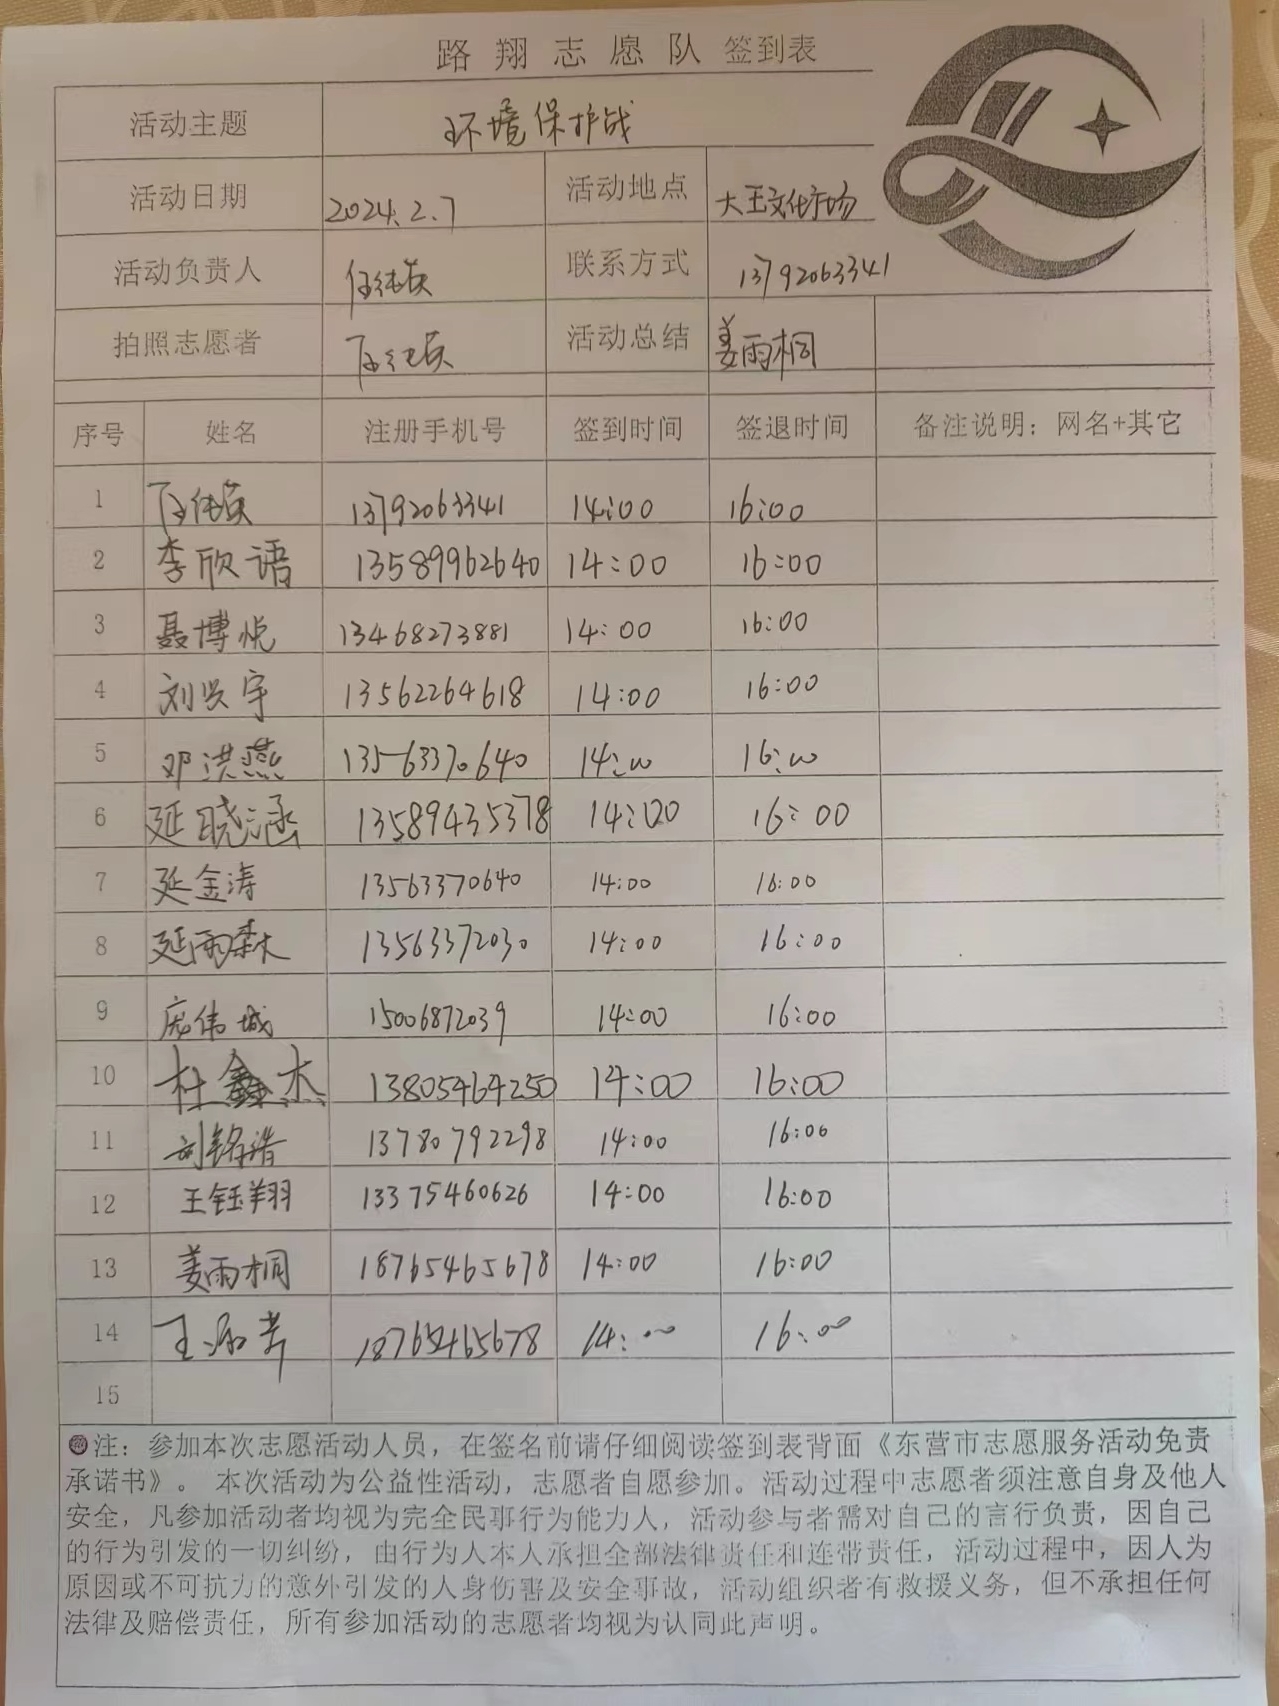 路翔志愿队 签到表
活动主题 环境保护战
活动日期 2024.2.7 活动地点 大王文化市场
活动负责人 联系方式 13792063341
拍照志愿者 活动总结 姜雨桐
序号 姓名 注册手机号 签到时间 签退时间 备注说明：网名+其它
1 13792063341 14:00 16:00
2 李欣语 13589962640 14:00 16:00
3 聂博悦 13468273881 14:00 16:00
4 刘兴宇 13562264618 14:00 16:00
5 邓洪燕 13563370640 14:00 16:00
6 延晓涵 13589435378 14:00 16:00
7 延金涛 13563370640 14:00 16:00
8 延雨霖 13563372030 14:00 16:00
9 庞伟城 15006872039 14:00 16:00
10 杜鑫杰 13805464250 14:00 16:00
11 刘铭浩 13780792298 14:00 16:00
12 王钰翔 13375460626 14:00 16:00
13 姜雨桐 18765465678 14:00 16:00
14 王 18765465678 14:00 16:00
15
注：参加本次志愿活动人员，在签名前请仔细阅读签到表背面《东营市志愿服务活动免责
承诺书》。 本次活动为公益性活动，志愿者自愿参加。活动过程中志愿者须注意自身及他人
安全，凡参加活动者均视为完全民事行为能力人，活动参与者需对自己的言行负责，因自己
的行为引发的一切纠纷，由行为人本人承担全部法律责任和连带责任，活动过程中，因人为
原因或不可抗力的意外引发的人身伤害及安全事故，活动组织者有救援义务，但不承担任何
法律及赔偿责任，所有参加活动的志愿者均视为认同此声明。